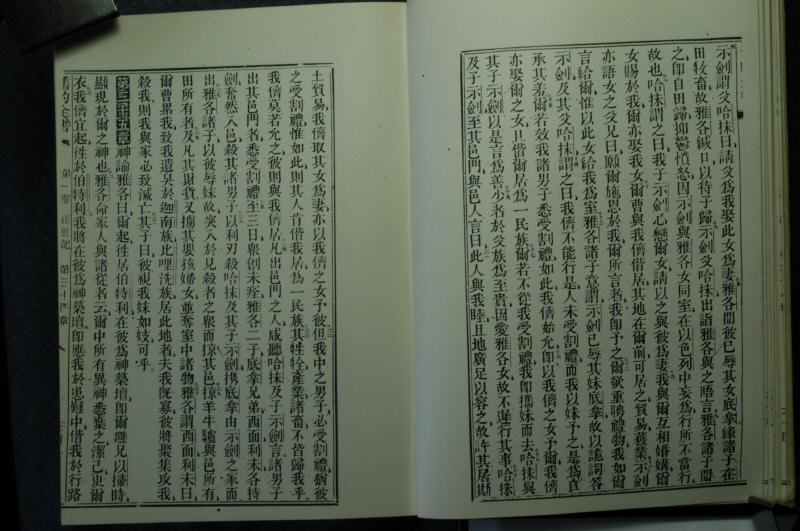 示劍謂父哈抹曰、請父爲我娶此女爲妻、雅各聞彼已辱其女底拿、緣諸子在
田牧畜、故雅各緘口以待子歸、示劍父哈抹出詣雅各與之語、言雅各諸子聞
之、卽自田歸、抑鬱憤怒、因示劍與雅各女同室、在以色列中妄爲、行所不當行
故也、哈抹謂之曰、我子示劍心戀爾女、請以之與彼爲妻、我與爾互相婚媾、爾
女賜於我、我亦娶我女、爾曹與我儕偕居、其地在爾前、可居之、貿易獲業、示劍
亦語女之父兄曰、願爾施恩於我、爾所言者、我卽予之、爾欲重聘禮物、我如爾
言給爾、惟以此女給我爲室、雅各諸子意謂示劍已辱其妹底拿、故以詭詞答
示劍及其父哈抹、謂之曰、我儕不能行是、人未受割禮、而我以妹予之、是爲自
承其羞、爾若效我、諸男子悉受割禮如此、我儕始允、卽以我儕之女予爾、我儕
亦娶爾之女、且偕爾居、爲一民族、爾若不從我受割禮、我卽攜妹而去、哈抹與
其子示劍以是言爲善、少者於父族爲至貴、因愛雅各女、故不遲行其事、哈抹
及子示劍至其邑門、與邑人言曰、此人與我睦、且地廣足以容之、故許其居斯
土貿易、我儕取其女爲妻、亦以我儕之女予彼、但我中之男子、必受割禮、猶彼
之受割禮、惟如此則其人肯偕我居、爲一民族、其牲牷產業諸畜、不皆歸我乎、
我儕莫若允之、彼則與我儕居、凡出邑門之人、咸聽哈抹及子示劍言、諸男子
出其邑門者、悉受割禮、至三日、衆創未痊、雅各二子、底拿兄弟西面利未、各持
劍奮然入邑、殺其諸男子、以利刃殺哈抹及其子示劍、攜底拿由示劍之家而
出、雅各諸子以彼辱妹、故突入於見殺者之衆、而掠其邑、掠羊牛驢與邑所有、
田所有者、及凡其財貨、又擄其嬰孩婦女、並奪室中諸物、雅各謂西面利未曰、
爾曹累我、致我遺臭於迦南族比哩洗族居此地者、夫我旣寡、彼將集集攻我
殺我、則我與家必致滅亡、其子曰、彼視我妹如妓可乎、
第三十五章 神諭雅各曰、爾起往居伯特利、在彼爲神築壇、卽爾避兄以掃時、
顯現於爾之神也、雅各命家人與諸從者云、爾中所有異神悉棄之、潔己更爾
衣、我儕宜起往於伯特利、我將在彼爲神築壇、卽應我於患難中、偕我於行路
舊約全書 第一卷 創世記 第三十四章